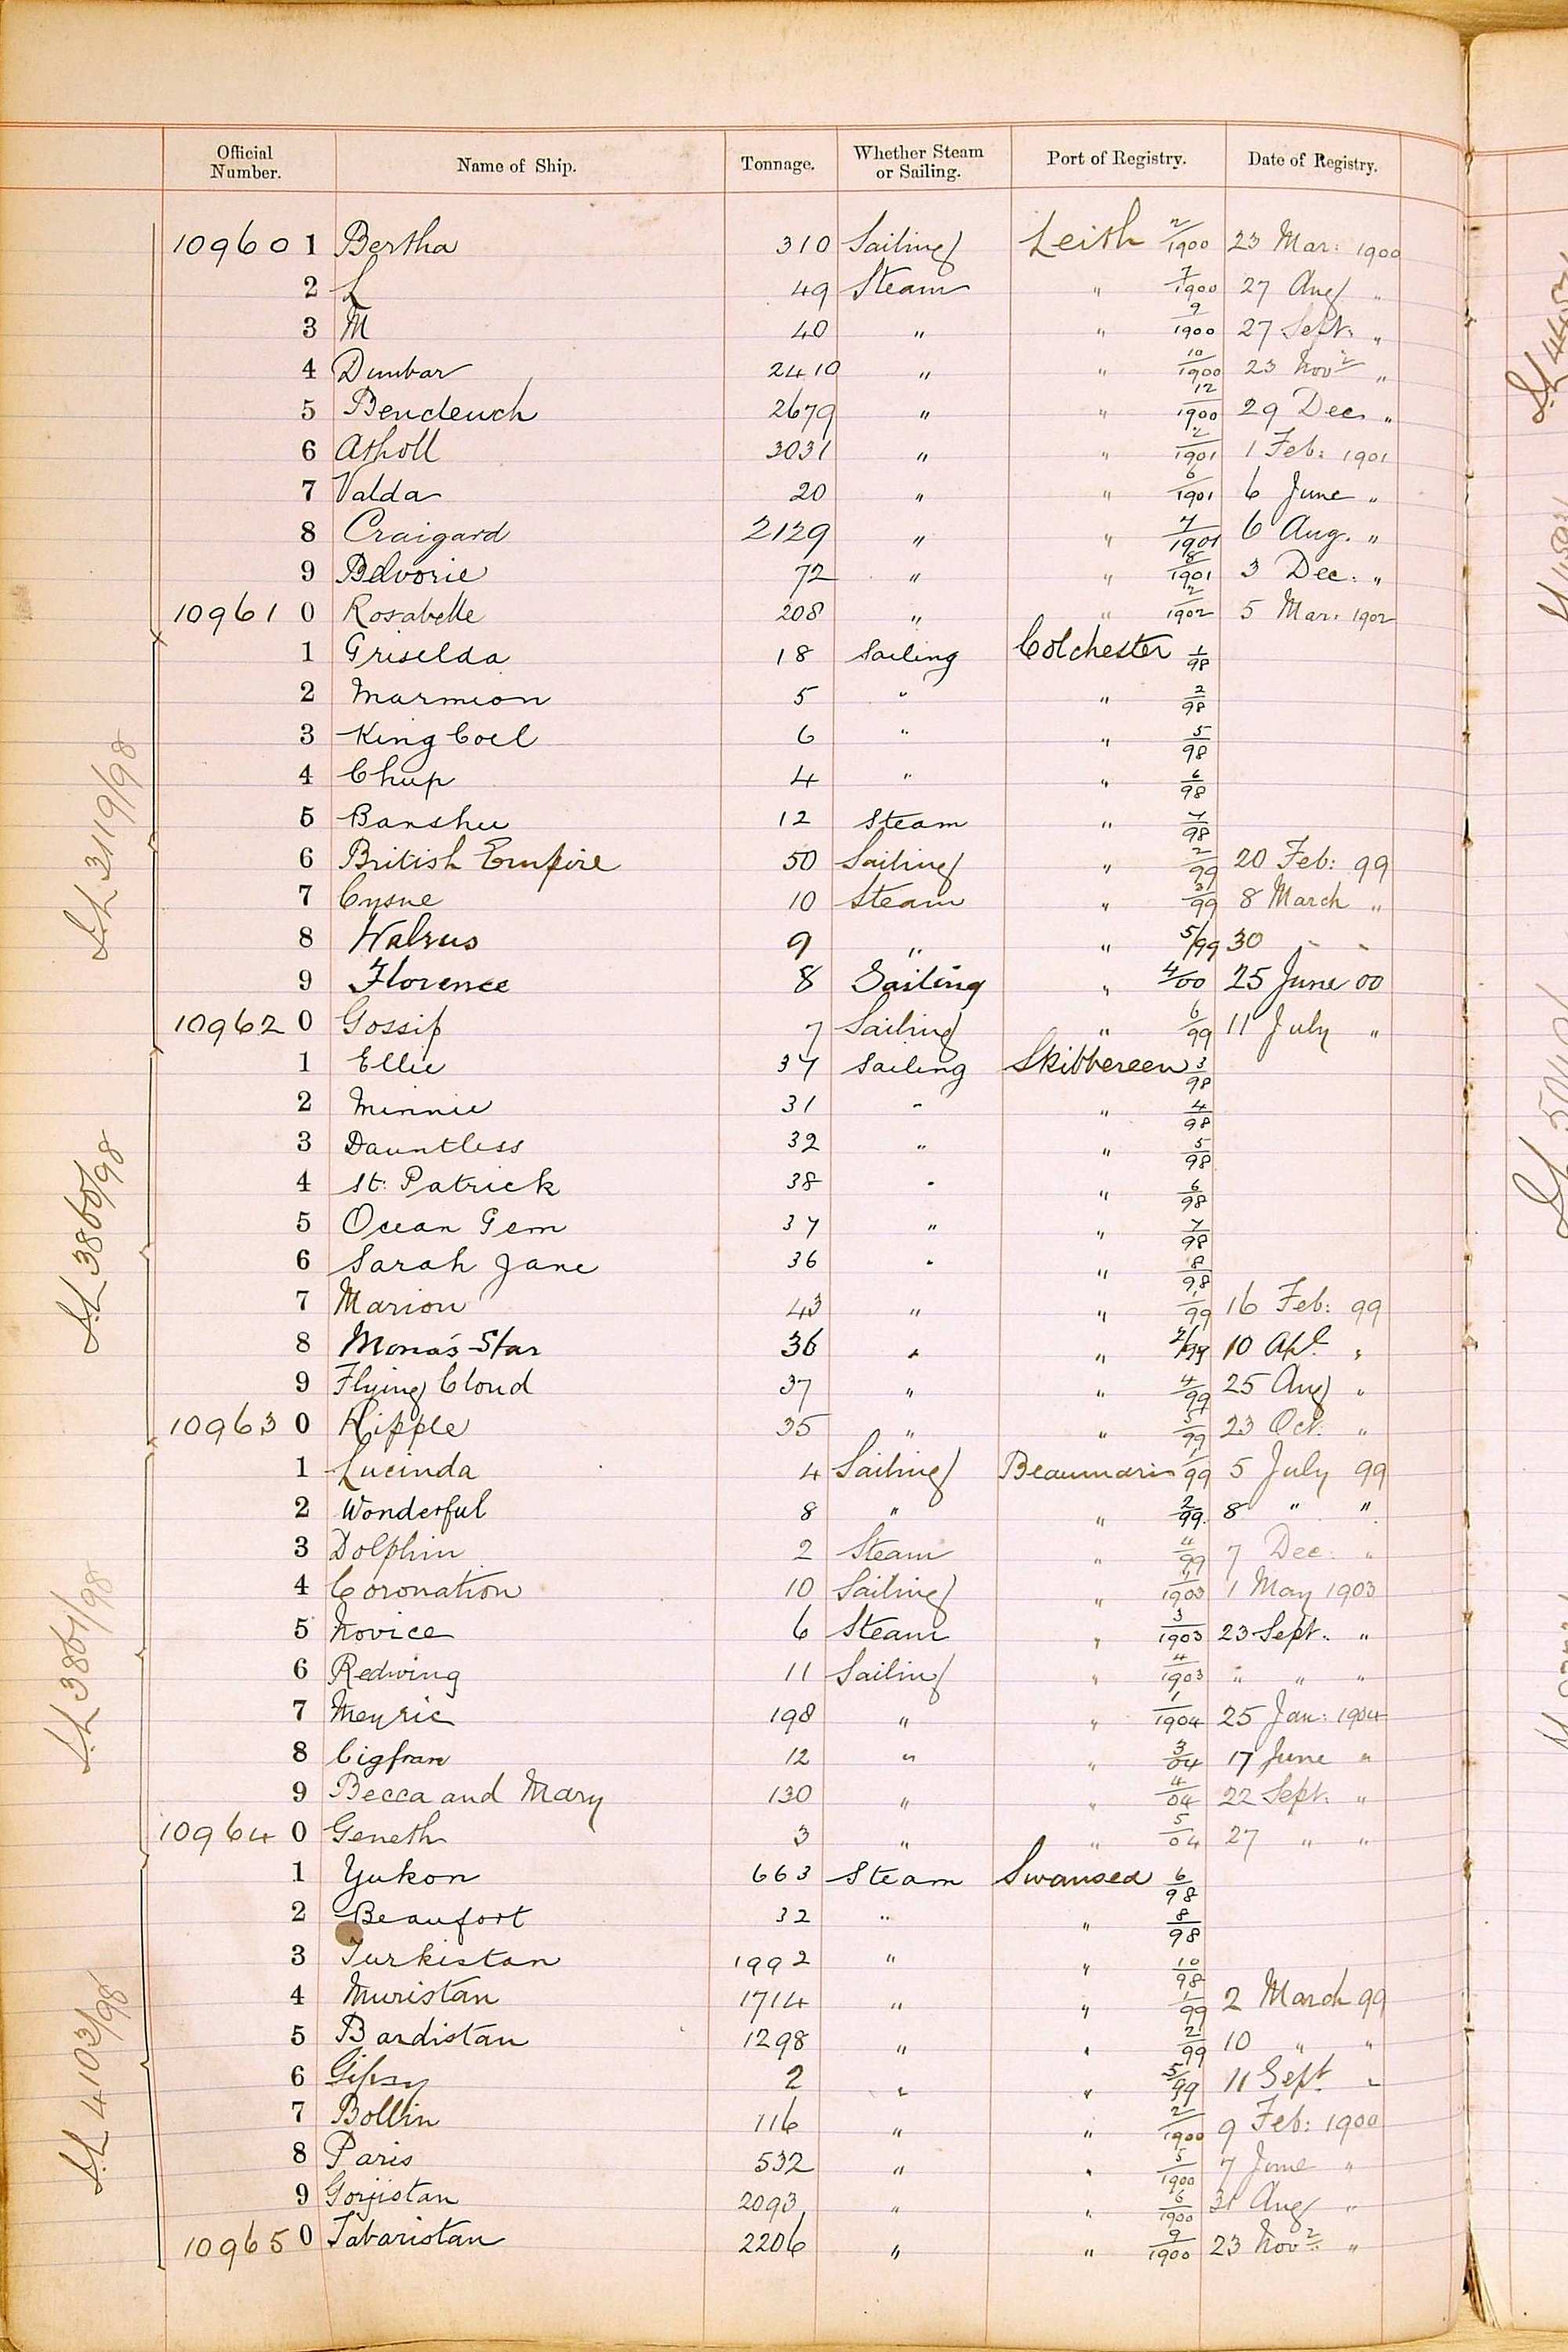 Official Number. Name of Ship. Tonnage. Whether Steam or Sailing. Port of Registry. Date of Registry.
10960 1 Bertha 310 Sailing Leith 2/1900 23 Mar: 1900
2 L 49 Steam " 7/1900 27 Aug "
3 M 40 " " 9/1900 27 Sept: "
4 Dunbar 2410 " " 10/1900 23 Novr "
5 Bencleuch 2679 " " 12/1900 29 Dec "
6 Atholl 3031 " " 2/1901 1 Feb: 1901
7 Valda 20 " " 6/1901 6 June "
8 Craigard 2129 " " 7/1901 6 Aug. "
9 Belvorie 72 " " 8/1901 3 Dec: "
10961 0 Rosabelle 208 " " 2/1902 5 Mar: 1902
1 Griselda 18 Sailing Colchester 1/98
2 Marmion 5 " " 2/98
3 King Coel 6 " " 5/98
4 Chup 4 " " 6/98
5 Banshee 12 Steam " 7/98
6 British Empire 50 Sailing " 2/99 20 Feb: 99
7 Cysne 10 Steam " 3/99 8 March "
8 Walrus 9 " " 5/99 30 " "
9 Florence 8 Sailing " 4/00 25 June 00
10962 0 Gossip 7 Sailing " 6/99 11 July "
1 Ellie 37 Sailing Skibbereen 3/98
2 Minnie 31 " " 4/98
3 Dauntless 32 " " 5/98
4 St: Patrick 38 " " 6/98
5 Ocean Gem 37 " " 7/98
6 Sarah Jane 36 " " 8/98
7 Marion 43 " " 1/99 16 Feb: 99
8 Mona's Star 36 " " 2/99 10 Apl "
9 Flying Cloud 37 " " 4/99 25 Aug "
10963 0 Ripple 35 " " 5/99 23 Oct: "
1 Lucinda 4 Sailing Beaumaris 1/99 5 July 99
2 Wonderful 8 " " 2/99 8 " "
3 Dolphin 2 Steam " 4/99 7 Dec: "
4 Coronation 10 Sailing " 1/1903 1 May 1903
5 Novice 6 Steam " 3/1903 23 Sept: "
6 Redwing 11 Sailing " 4/1903 " " "
7 Meyric 198 " " 1/1904 25 Jan: 1904
8 Cigfran 12 " " 3/04 17 June "
9 Becca and Mary 130 " " 4/04 22 Sept: "
10964 0 Geneth 3 " " 5/04 27 " "
1 Yukon 663 Steam Swansea 6/98
2 Beaufort 32 " " 8/98
3 Turkistan 1992 " " 10/98
4 Muristan 1714 " " 1/99 2 March 99
5 Bardistan 1298 " " 2/99 10 " "
6 Gipsy 2 " " 5/99 11 Sept "
7 Bollin 116 " " 2/1900 9 Feb: 1900
8 Paris 532 " " 5/1900 7 June "
9 Gorjistan 2093 " " 6/1900 31 Aug "
10965 0 Tabaristan 2206 " " 9/1900 23 Novr "
S.L 3119/98
S.L 3860/98
S.L 3861/98
S.L 4103/98